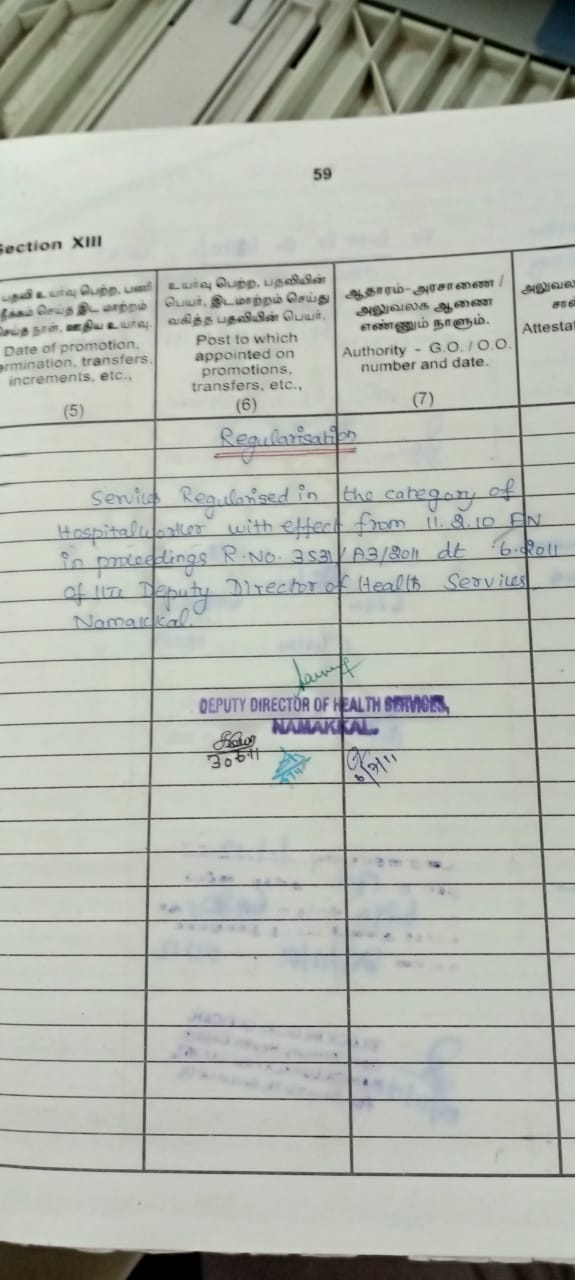 59
Section XIII
பதவி உயர்வு பெற்ற, பணி
நீக்கம் செய்த இட மாற்றம்
செய்த நாள், ஊதிய உயர்வு.
Date of promotion,
ermination, transfers,
increments, etc.,
(5)
உயர்வு பெற்ற, பதவியின்
பெயர், இடமாற்றம் செய்து
வகித்த பதவியின் பெயர்.
Post to which
appointed on
promotions,
transfers, etc.,
(6)
ஆதாரம்-அரசாணை /
அலுவலக ஆணை
எண்ணும் நாளும்.
Authority - G.O. / O.O.
number and date.
(7)
அலுவல
சான்
Attestat
Regularisation
Service Regularised in the category of
Hospital worker with effect from 11.2.10 AN
in proceedings R.No. 3531/A3/2011 dt .6.2011
of the Deputy Director of Health Services
Namakkal.
DEPUTY DIRECTOR OF HEALTH SERVICES,
NAMAKKAL.
30611
6/7/11